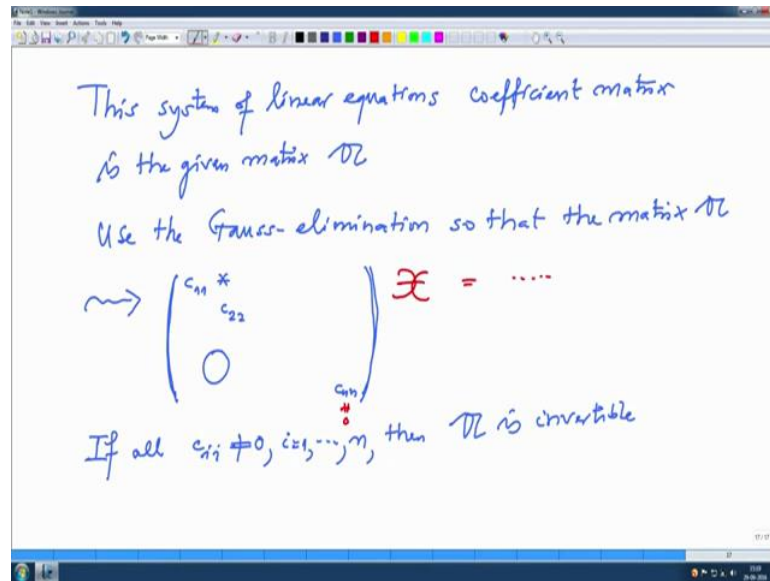 Note1 - Windows Journal
File Edit View Insert Actions Tools Help
Page Width
This system of linear equations coefficient matrix
is the given matrix 𝔄
Use the Gauss-elimination so that the matrix 𝔄
⇝ ( c₁₁ * 𝔛 = .....
c₂₂
0
cₙₙ )
≠
0
If all cᵢᵢ ≠ 0, i=1, ..., n, then 𝔄 is invertible
17/17
17